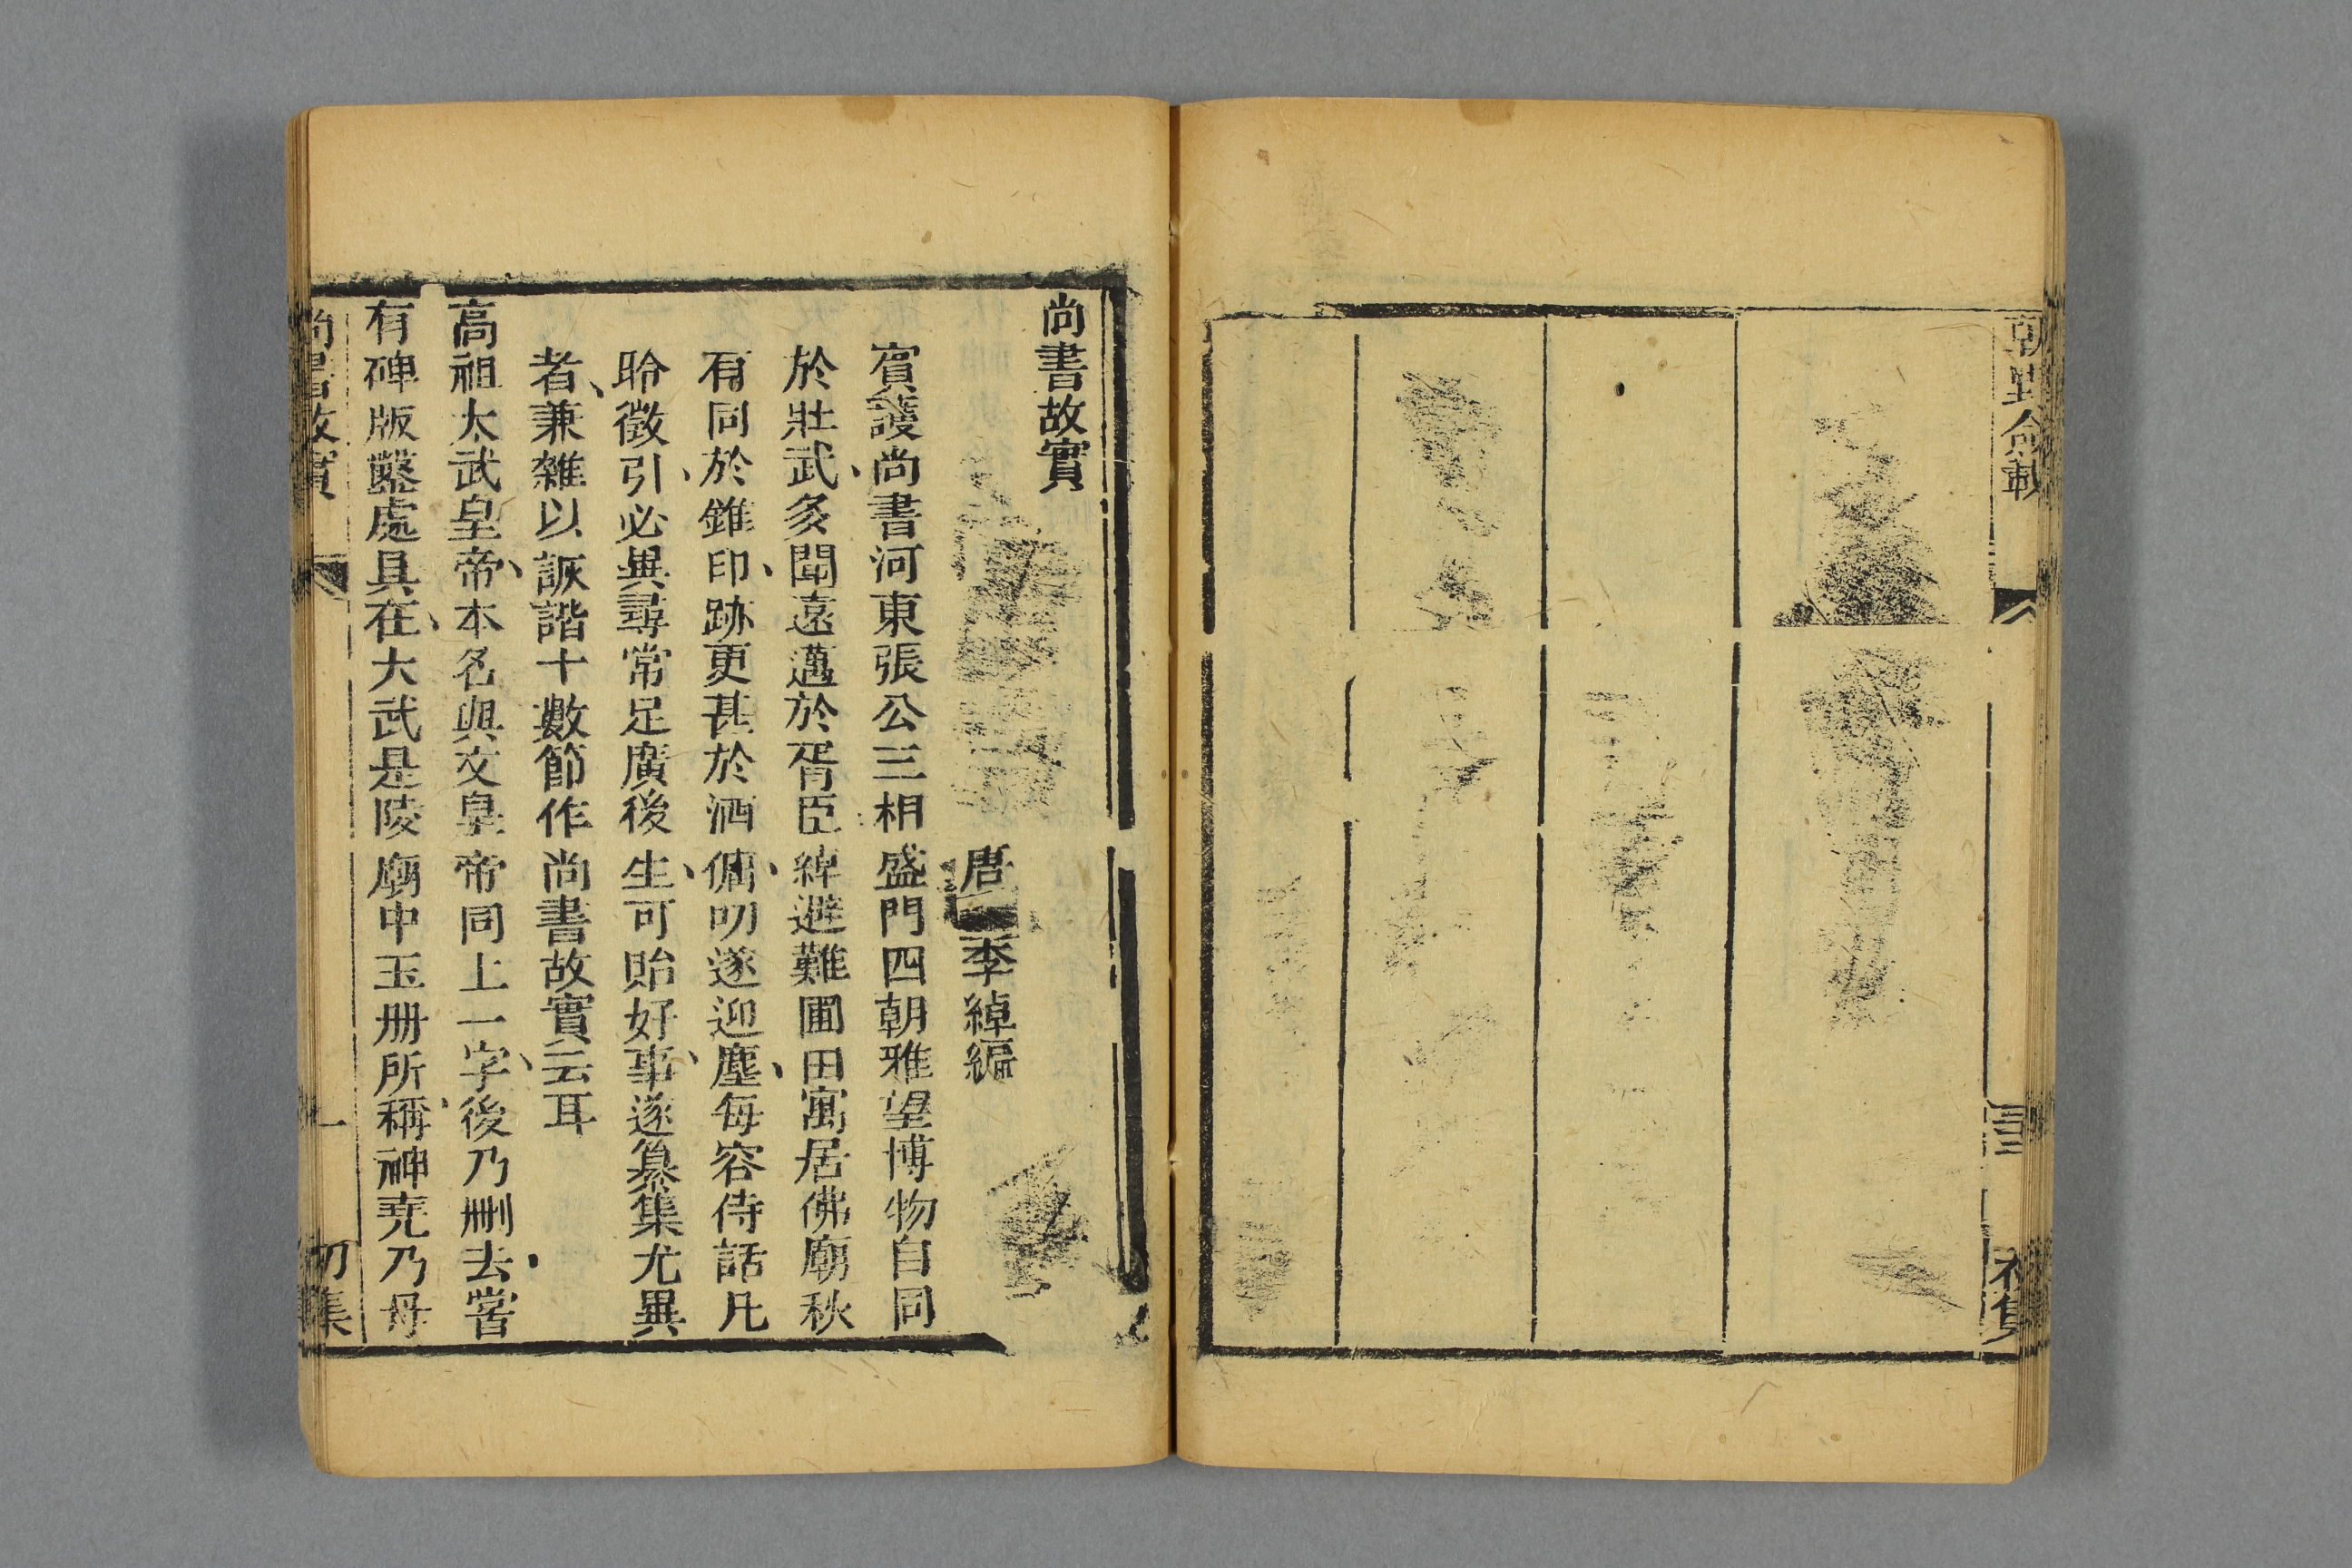 朝野僉載
尚書故實
唐 李綽編
賔護尚書河東張公三相盛門四朝雅望博物自同
於壯武多聞遠邁於胥臣綽避難圃田寓居佛廟秋
有同於錐印跡更甚於酒傭叨遂迎塵每容侍話凡
聆徵引必異尋常足廣後生可貽好事遂纂集尤異
者兼雜以詼諧十數節作尚書故實云耳
高祖太武皇帝本名與文皇帝同上一字後乃刪去嘗
有碑版鑿處具在太武是陵廟中玉册所稱神堯乃母
尚書故實 一 初集